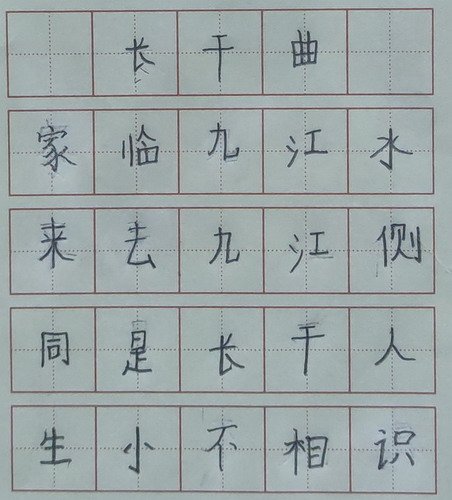 长干曲
家临九江水
来去九江侧
同是长干人
生小不相识